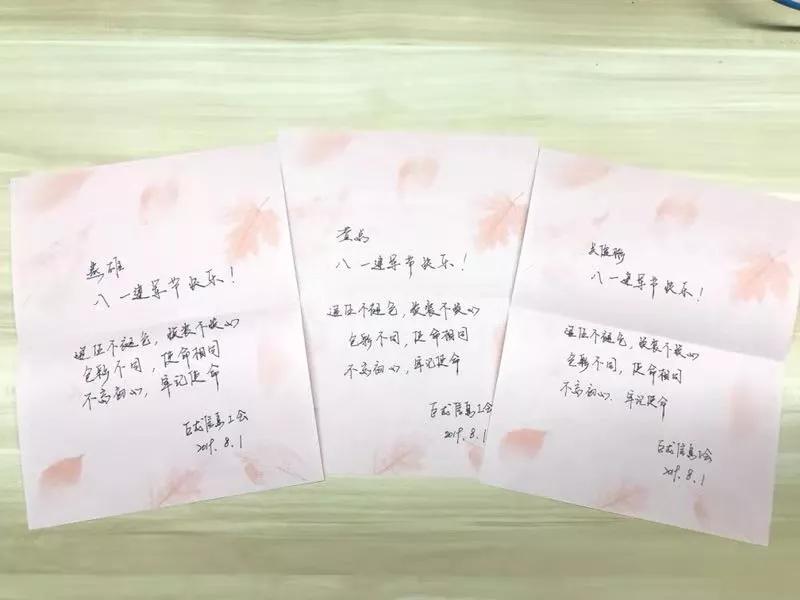 八一建军节快乐!
退伍不褪色,改装不改心
色彩不同,使命相同
不忘初心,牢记使命
巨龙信息工会
2019.8.1
八一建军节快乐!
退伍不褪色,改装不改心
色彩不同,使命相同
不忘初心,牢记使命
巨龙信息工会
2019.8.1
八一建军节快乐!
退伍不褪色,改装不改心
色彩不同,使命相同
不忘初心、牢记使命
巨龙信息工会
2019.8.1